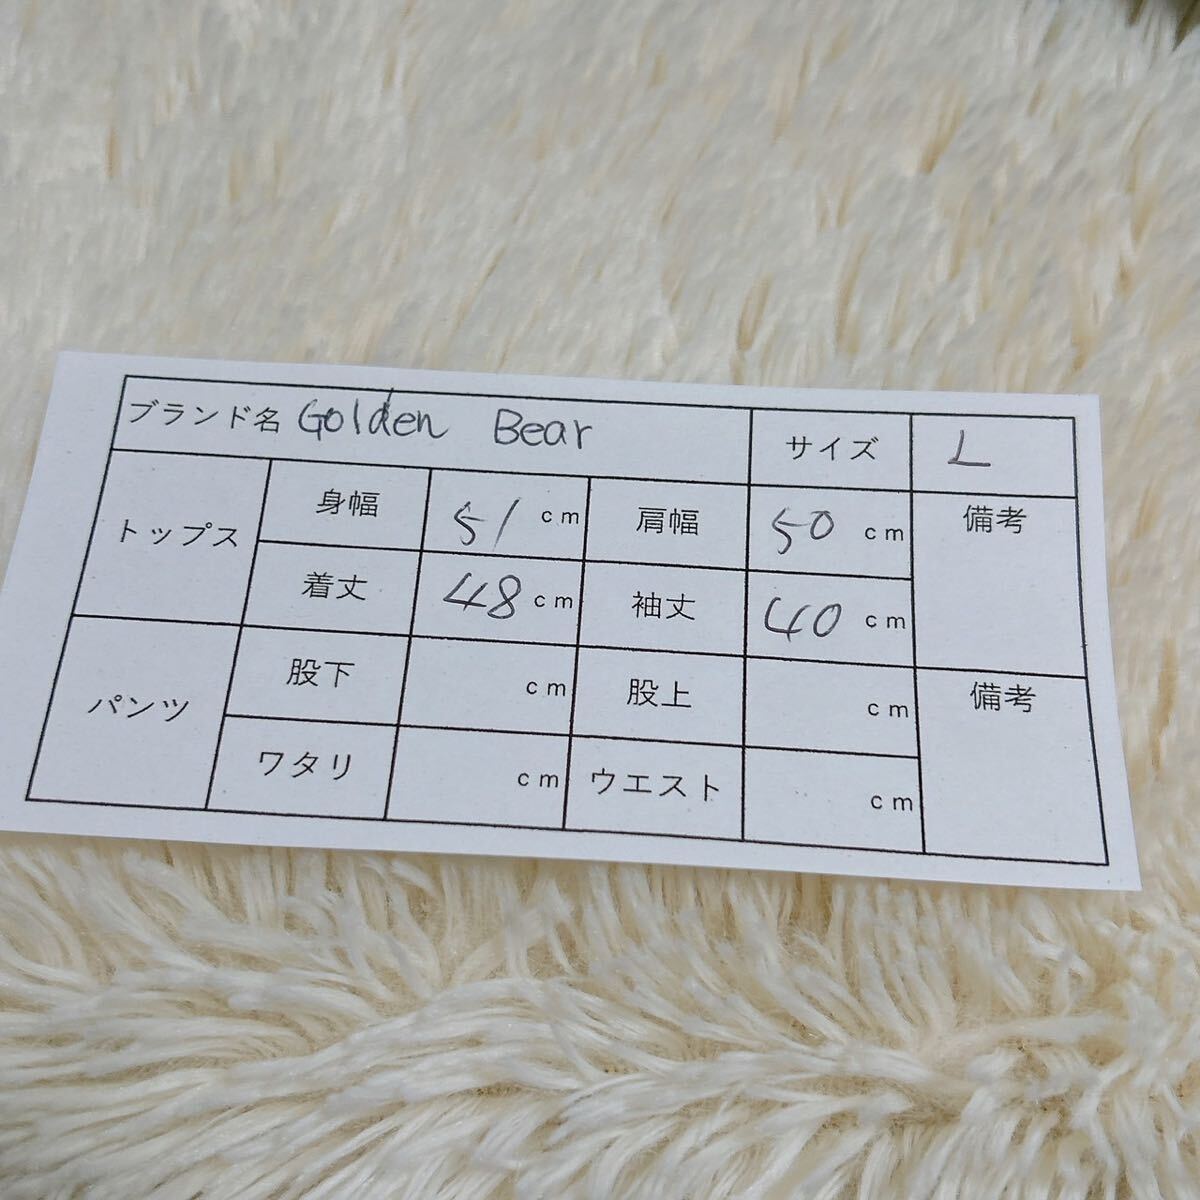 ブランド名 Golden Bear サイズ L
トップス 身幅 51 cm 肩幅 50 cm 備考
着丈 48 cm 袖丈 40 cm
パンツ 股下 cm 股上 cm 備考
ワタリ cm ウエスト cm